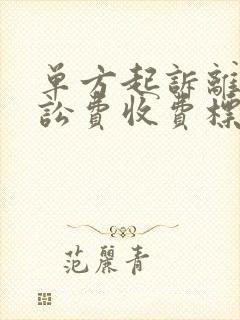 单方起訴離
訟費收費標
范麗青